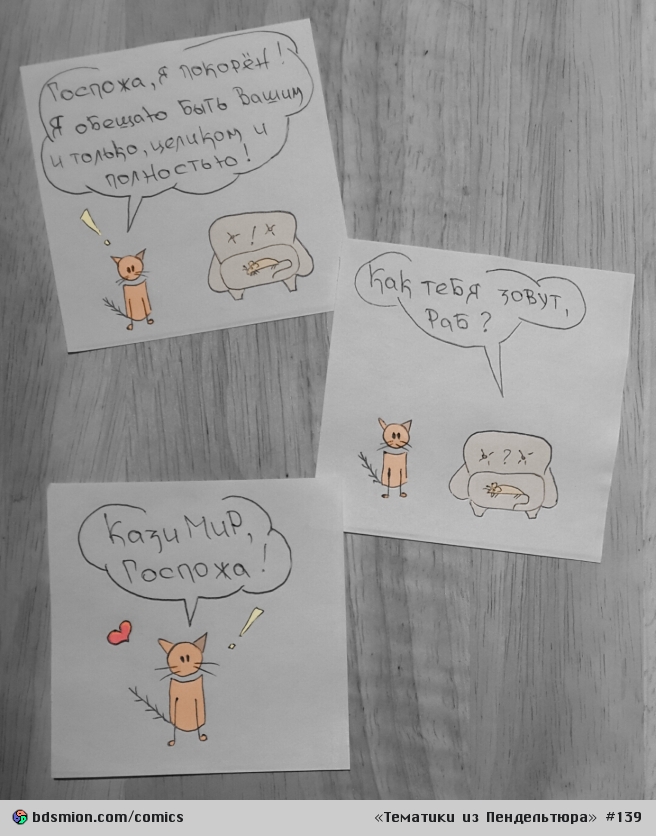 Госпожа, я покорён!
Я обещаю быть Вашим
и только, целиком и
полностью!
!
!
Как тебя зовут,
раб?
?
КазиМиР,
Госпожа!
!
bdsmion.com/comics
«Тематики из Пендельтюра» #139